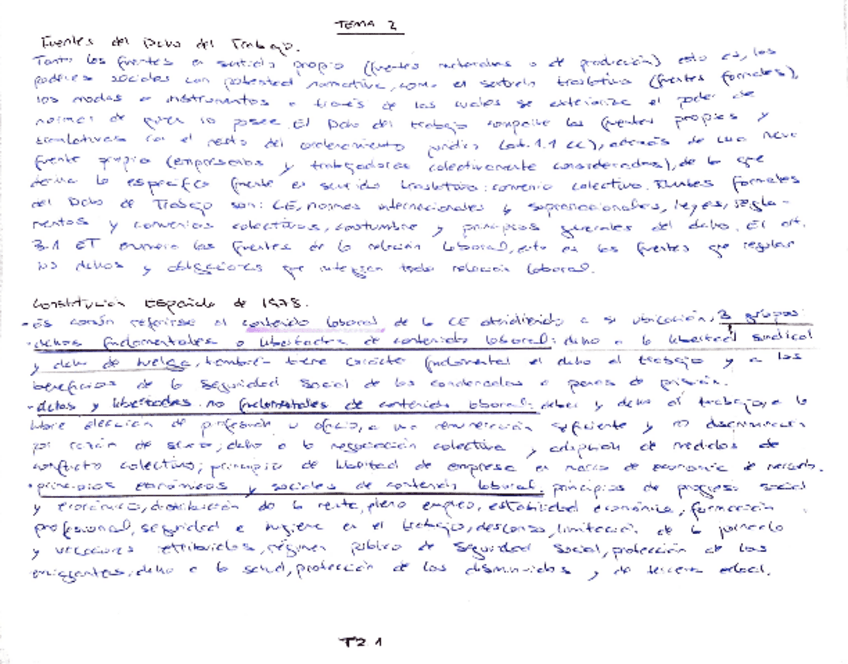 TEMA 2
Fuentes del Dcho del Trabajo.
Tanto las fuentes en sentido propio (fuentes materiales o de producción) esto es, los
poderes sociales con potestad normativa, como en sentido traslativo (fuentes formales),
los modos o instrumentos a través de los cuales se exterioriza el poder de
normar de quien lo posee. El Dcho del trabajo comparte las fuentes propias y
traslativas con el resto del ordenamiento jurídico (art. 1.1 CC), además de una nueva
fuente propia (empresarios y trabajadores colectivamente considerados), de la que
deriva la específica fuente en sentido traslativo: convenio colectivo. Fuentes formales
del Dcho de Trabajo son: CE, normas internacionales y supranacionales, leyes, regla-
mentos y convenios colectivos, costumbre y principios generales del dcho. El art.
3.1 ET enumera las fuentes de la relación laboral, esto es las fuentes que regulan
los dchos y obligaciones que integran toda relación laboral.
Constitución Española de 1978.
- es común referirse al contenido laboral de la CE atendiendo a su ubicación, 3 grupos:
· dchos fundamentales o libertades de contenido laboral: dcho a la libertad sindical
y dcho de huelga, también tiene carácter fundamental el dcho al trabajo y a los
beneficios de la Seguridad Social de los condenados a penas de prisión.
· dchos y libertades no fundamentales de contenido laboral: deber y dcho al trabajo, a la
libre elección de profesión u oficio, a una remuneración suficiente y no discriminación
por razón de sexo; dcho a la negociación colectiva y adopción de medidas de
conflicto colectivo; principio de libertad de empresa en marco de economía de mercado.
· principios económicos y sociales de contenido laboral: principios de progreso social
y económico, distribución de la renta, pleno empleo, estabilidad económica, formación
profesional, seguridad e higiene en el trabajo, descanso, limitación de la jornada
y vacaciones retribuidas, régimen público de Seguridad Social, protección de los
emigrantes, dcho a la salud, protección de los disminuidos y de tercera edad.
T2 1